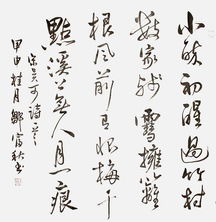 小醉初醒過竹村
數家殘雪擁籬
根風前有恨梅千
點溪上無人月一痕
宋吳可詩
甲申桂月鄒